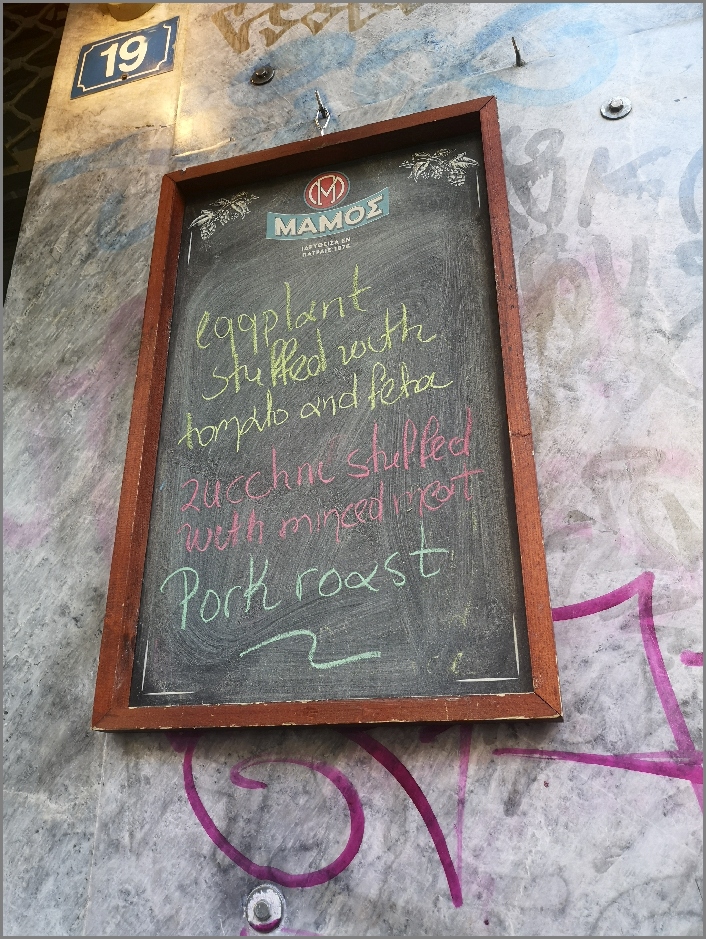 19
ΜΑΜΟΣ
ΙΔΡΥΘΕΙΣΑ ΕΝ
ΠΑΤΡΑΙΣ 1876
eggplant
stuffed with
tomato and feta
zucchni stuffed
with minced meat
Pork roast